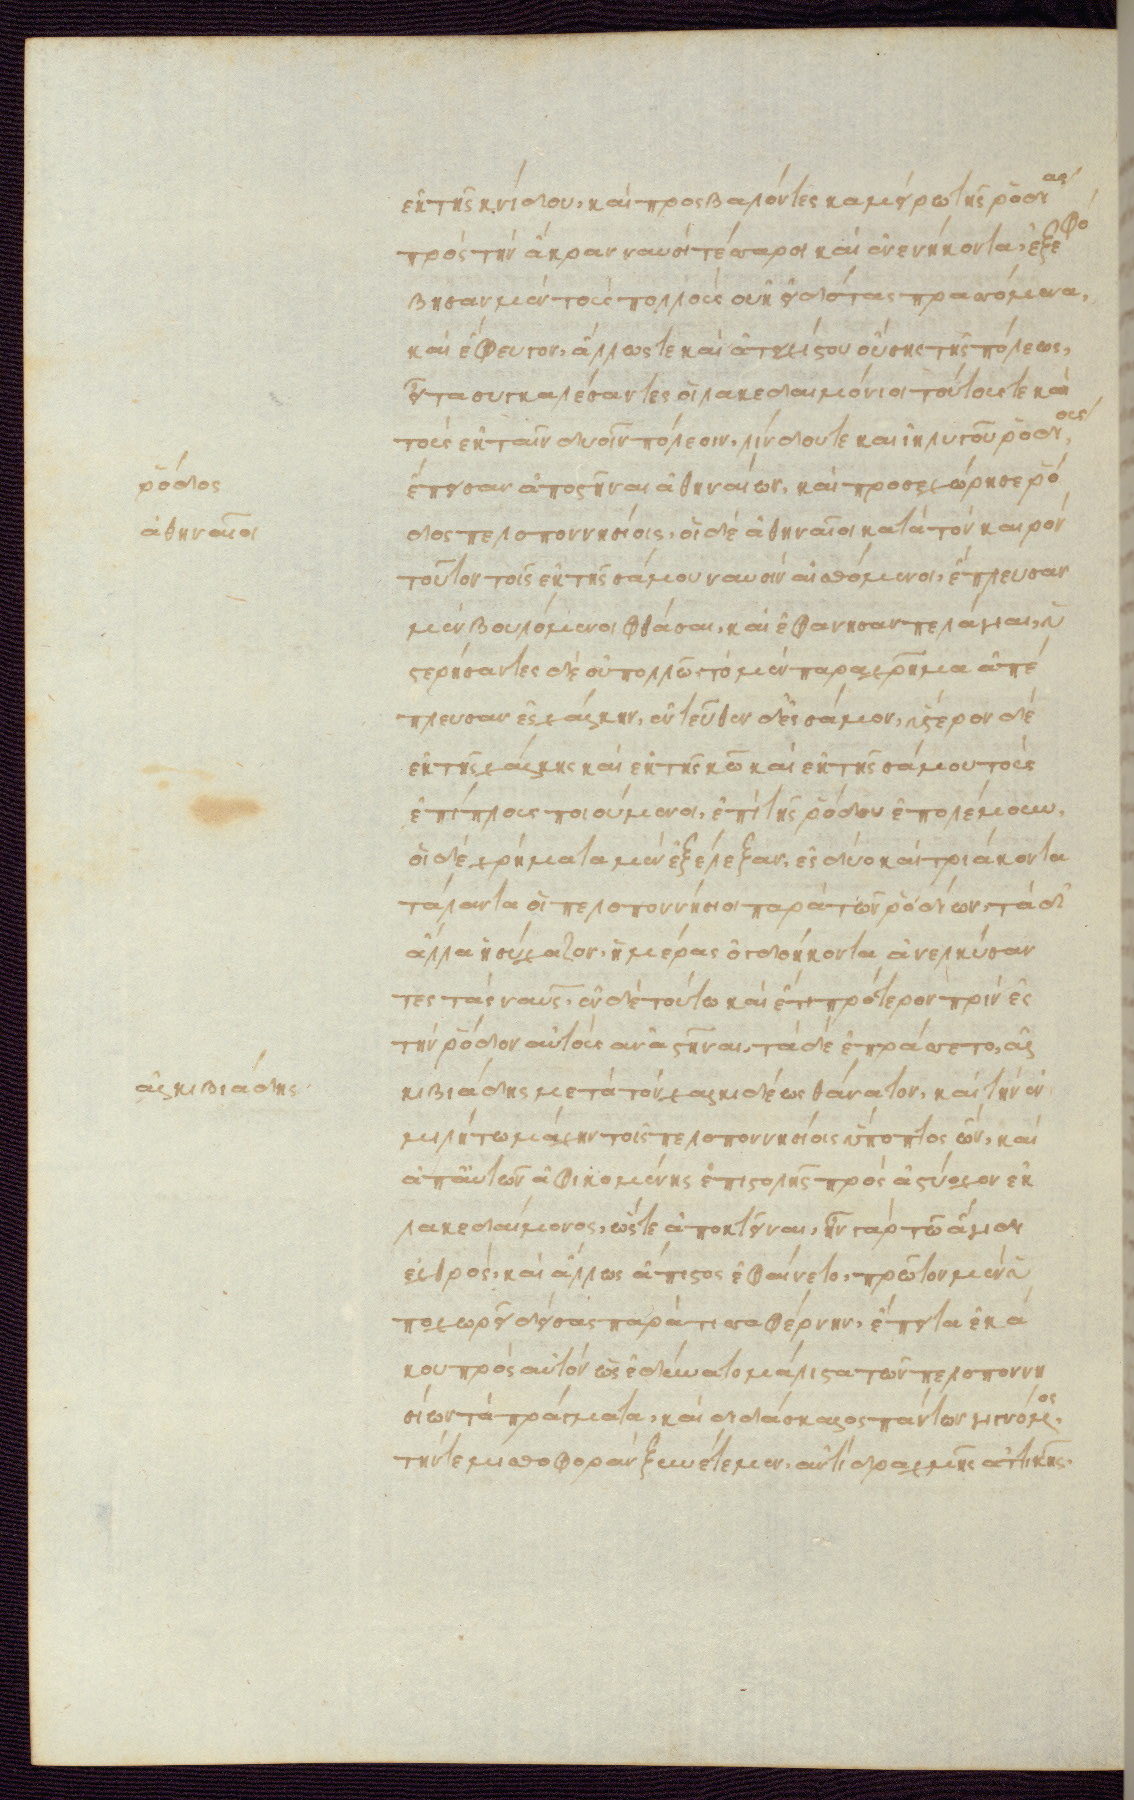 ἐκ τῆς κνίδου, καὶ προςβαλόντες καμείρω τῆς ῥοδίας
πρὸς τὴν ἄκραν ναυσὶ τέσσαρσι καὶ ἐνενήκοντα, ἐξεφό
βησαν μὲν τοὺς πολλοὺς οὐκ εἰδότας πρασσόμενα,
καὶ ἔφευγον, ἄλλως τε καὶ ἀτειχίστου οὔσης τῆς πόλεως,
εἶτα συγκαλέσαντες οἱ λακεδαιμόνιοι τούτους τε καὶ
τοὺς ἐκ ταῖν δυοῖν πόλεσιν, λίνδου τε καὶ ἰηλυσοῦ ῥοδίους,
ἔπεισαν ἀποστῆναι ἀθηναίων, καὶ προσεχώρησε ῥό
ῥόδος
δος πελοποννησίοις, οἱ δὲ ἀθηναῖοι κατὰ τὸν καιρὸν
ἀθηναῖοι
τοῦτον τοῖς ἐκ τῆς σάμου ναυσὶν αἰσθόμενοι, ἔπλευσαν
μὲν βουλόμενοι φθάσαι, καὶ ἐφάνησαν πελάγιαι, ὑ
στερήσαντες δὲ οὐ πολλῶ, τὸ μὲν παραχρῆμα ἀπέ
πλευσαν ἐς χάλκην, ἐντεῦθεν δ' ἐς σάμον, ὕστερον δὲ
ἐκ τῆς χάλκης καὶ ἐκ τῆς κῶ καὶ ἐκ τῆς σάμου τοὺς
ἐπίπλους ποιούμενοι, ἐπὶ τῆς ῥόδου ἐπολέμουν,
οἱ δὲ χρήματα μὲν ἐξέλεξαν, ἐς δύο καὶ τριάκοντα
τάλαντα οἱ πελοποννήσιοι παρὰ τῶν ῥοδίων, τὰ δ'
ἄλλα ἡσύχαζον, ἡμέρας ὀγδοήκοντα ἀνελκύσαν
τες τὰς ναῦς, ἐν δὲ τούτω καὶ ἔτι πρότερον πρὶν ἐς
τὴν ῥόδον αὐτοὺς ἀναστῆναι, τάδε ἐπράσσετο, ἀλ
κιβιάδης μετὰ τὸν χαλκιδέως θάνατον, καὶ τὴν ἐν
ἀλκιβιάδης
μιλήτω μάχην τοῖς πελοποννησίοις ὕποπτος ὢν, καὶ
ἀπ' αὐτῶν ἀφικομένης ἐπιστολῆς πρὸς ἀστύοχον ἐκ
λακεδαίμονος, ὥστε ἀποκτεῖναι, ἦν γὰρ τῶ ἄγιδι
ἐχθρός, καὶ ἄλλως ἄπιστος ἐφαίνετο, πρῶτον μὲν ὑ
ποχωρεῖ δείσας παρὰ τισσαφέρνην, ἔπειτα ἐκά
κου πρὸς αὐτὸν ὡς ἐδύνατο μάλιστα τῶν πελοποννη
σίων τὰ πράγματα, καὶ διδάσκαλος πάντων γενόμενος,
τήν τε μισθοφορὰν ξυνέτεμεν, ἀντὶ δραχμῆς ἀττικῆς.